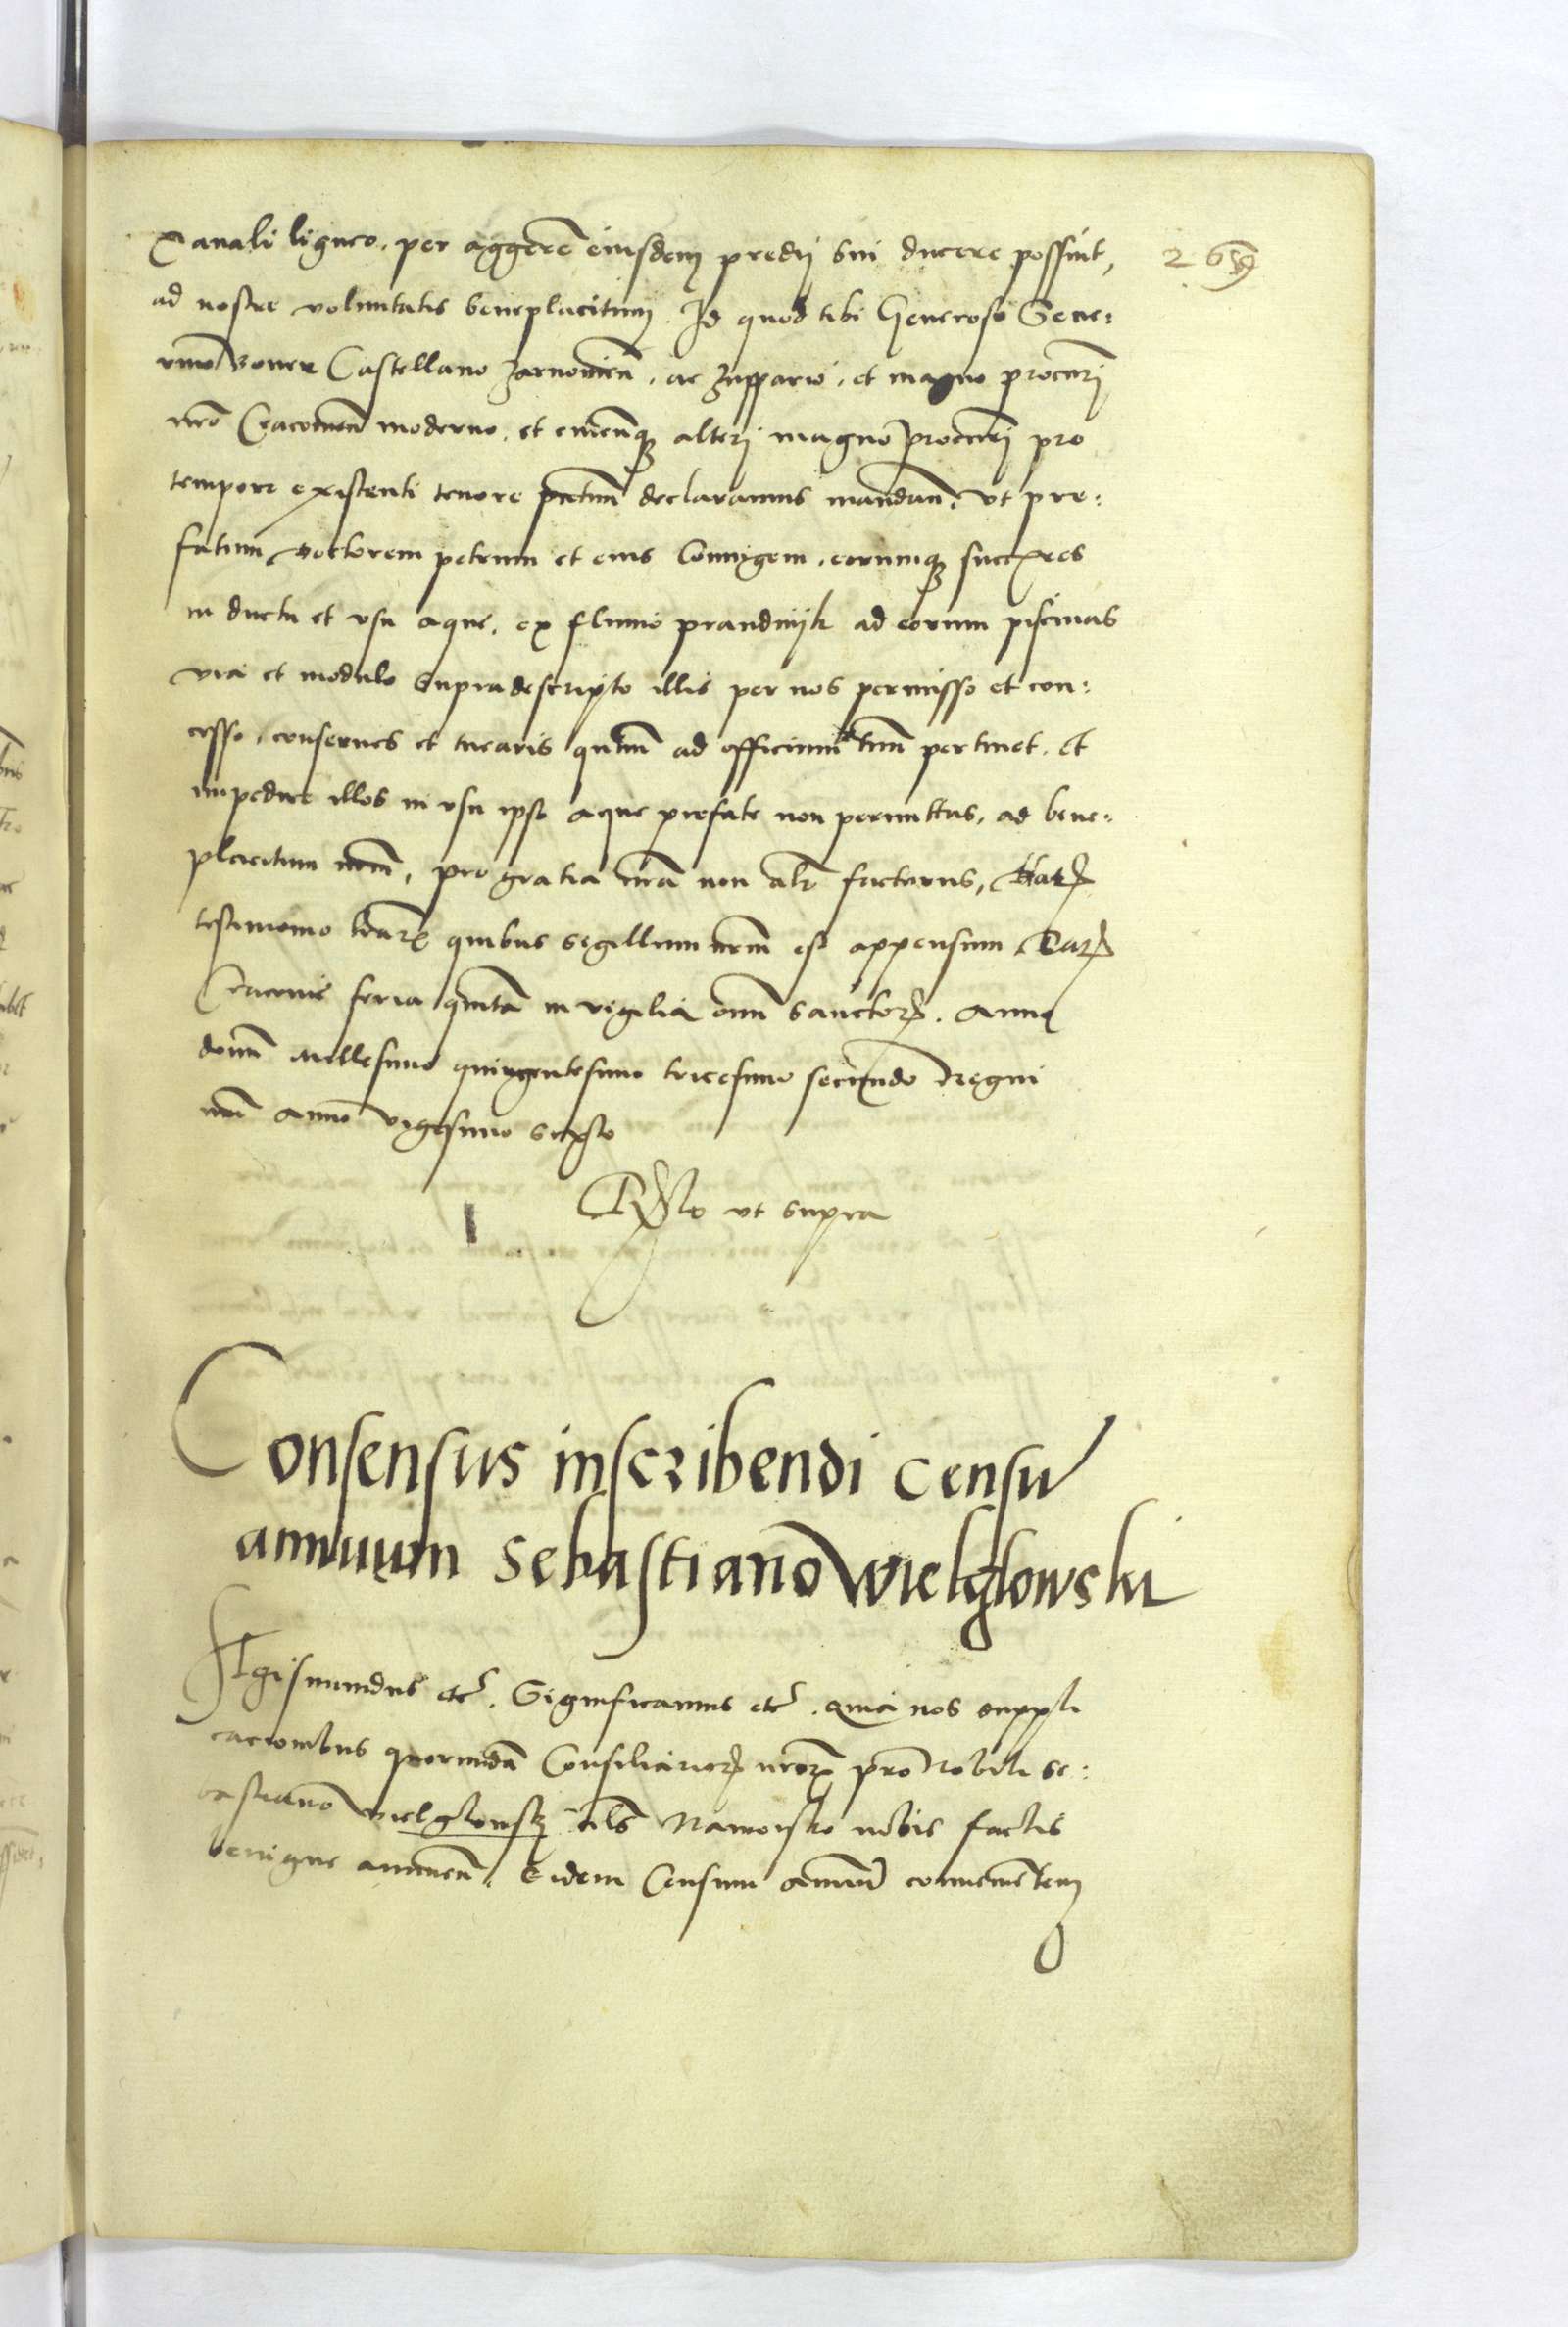 Canali ligneo, per aggerē eiusdem predij sui ducere possint,
ad nostre voluntatis beneplacitum. Id quod tibi Generoso Seve:
rino Boner Castellano Zarnowieñ. ac Zuppario, et magno procuri
nrō Cracovieñ moderno, et cuicunq; alteri magno procuri pro
tempore existenti tenore pñtium declaramus mandañ. vt pre:
fatum doctorem petrum et eius Coniugem, eorumq; succēores
in ductu et vsu aque, ex fluuio prandnijk ad eorum piscinas
via et modulo supradescripto illis per nos permisso et con:
cesso, conserves et tuearis qntum ad officium tuum pertinet. Et
impedire illos in vsu ipso aque prefate non permittas, ad bene:
placitum nrm̄, pro gratia nrā non alr̄ facturus, Harꝝ
testimonio lrarꝝ quibus sigillum nrm̄ est appensum Datꝝ
Cracovie feria quinta in vigilia om̄ sanctorꝝ. Anno
domī Millesimo quingentesimo tricesimo secundo Regni
nrī Anno vigesimo sexto
Rlō vt supra
Consensus inscribendi censū
annuum Sebastiano Wielglowski
Sigismundus etc. Significamus etc. quia nos suppli
cacionibus quorundā Consiliariorꝝ nrorꝝ pro Nobili Se:
bastiano Vielglowsky als Nawoisko nobis factis
benigne annueñ. Eidem Censum annuū convenientem